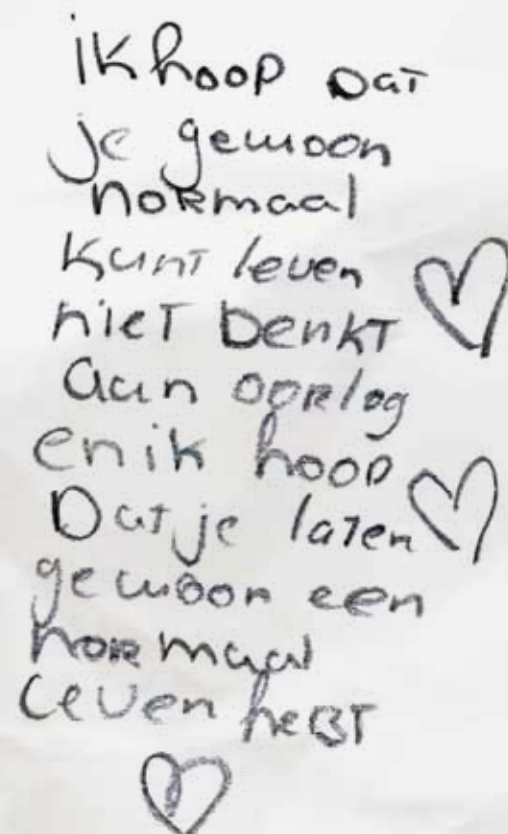 ik hoop Dat
je gewoon
normaal
kunt leven
niet Denkt
aan oorlog
en ik hoop
Dat je laten
gewoon een
normaal
leven heBT